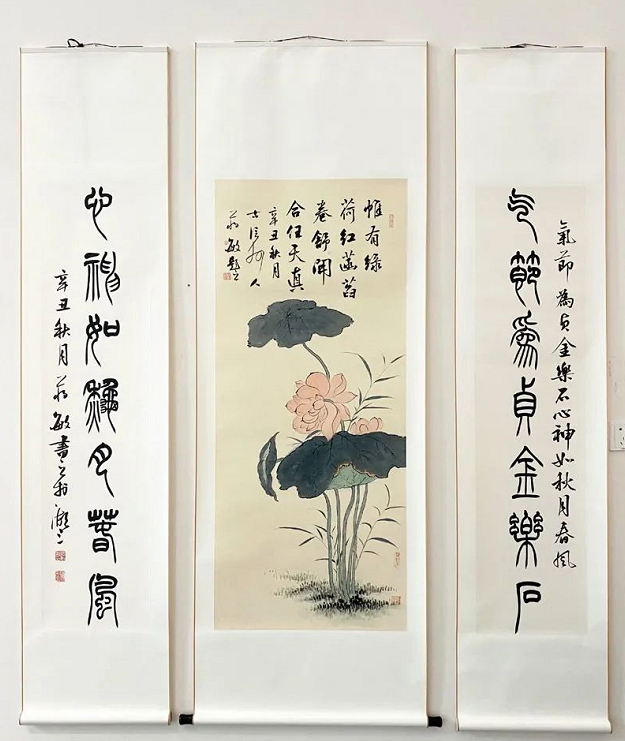 气節為貞金樂石
氣節為貞金樂石心神如秋月春風
惟有綠
荷紅菡萏
卷舒開
合任天真
辛丑秋月
人
敏題
心神如秋月春風
辛丑秋月
敏書之於滬上